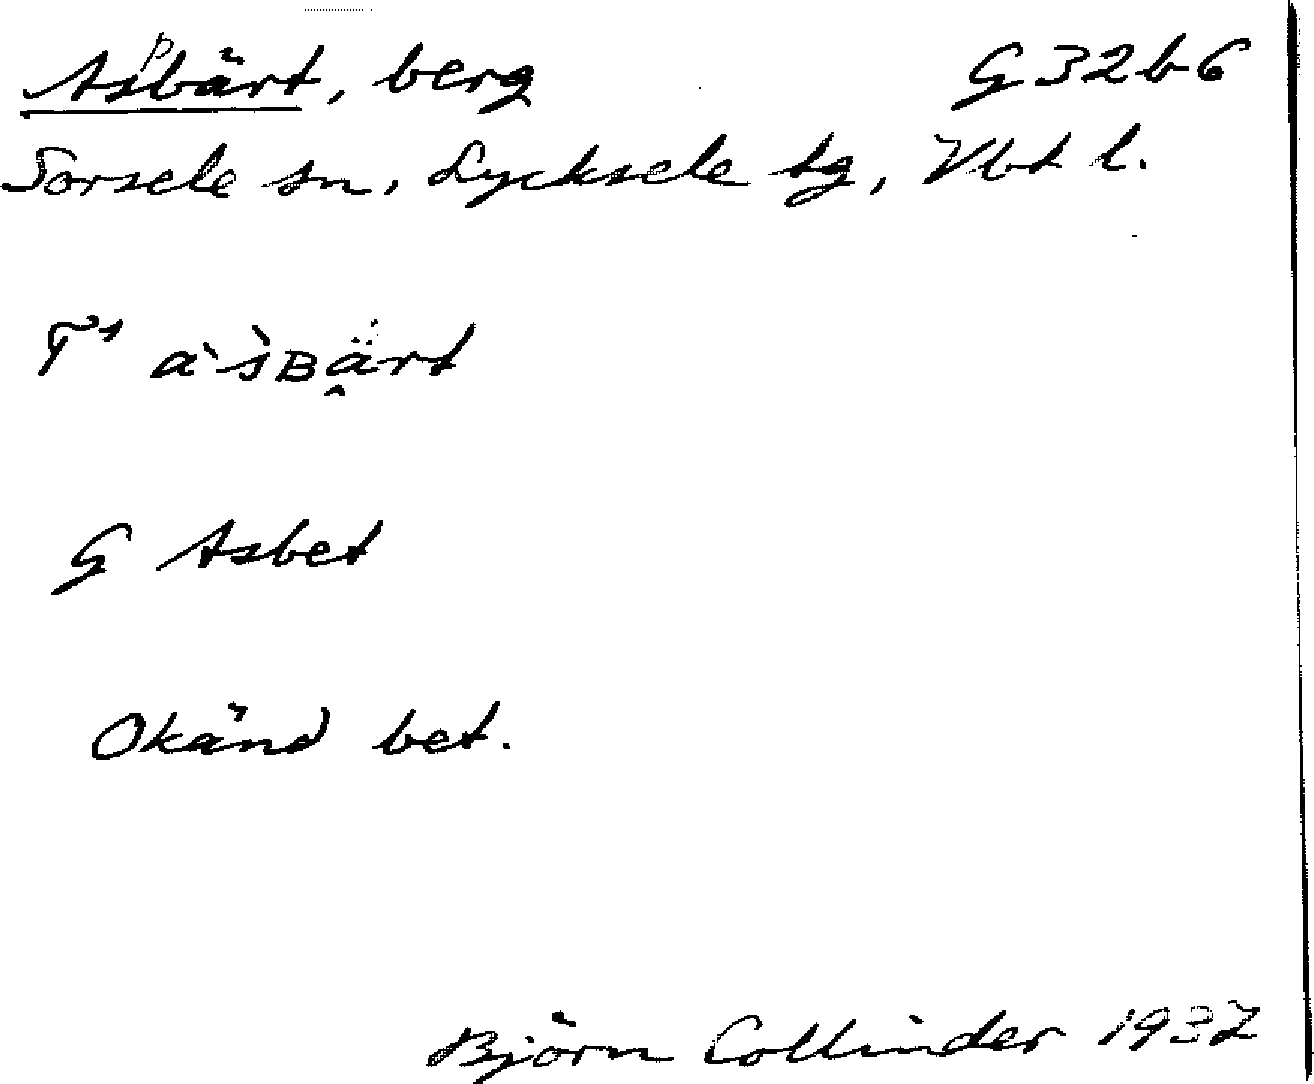 Asbärt, berg G 32 b 6
p
Sorsele sn, Lycksele tg, Vbt l.
T¹ a`s̀ʙärt
G Asbet
Okänd bet.
Björn Collinder 1937